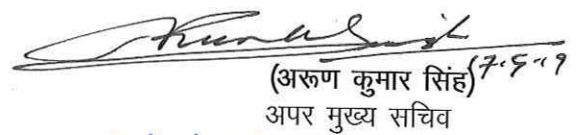 (अरूण कुमार सिंह)
अपर मुख्य सचिव